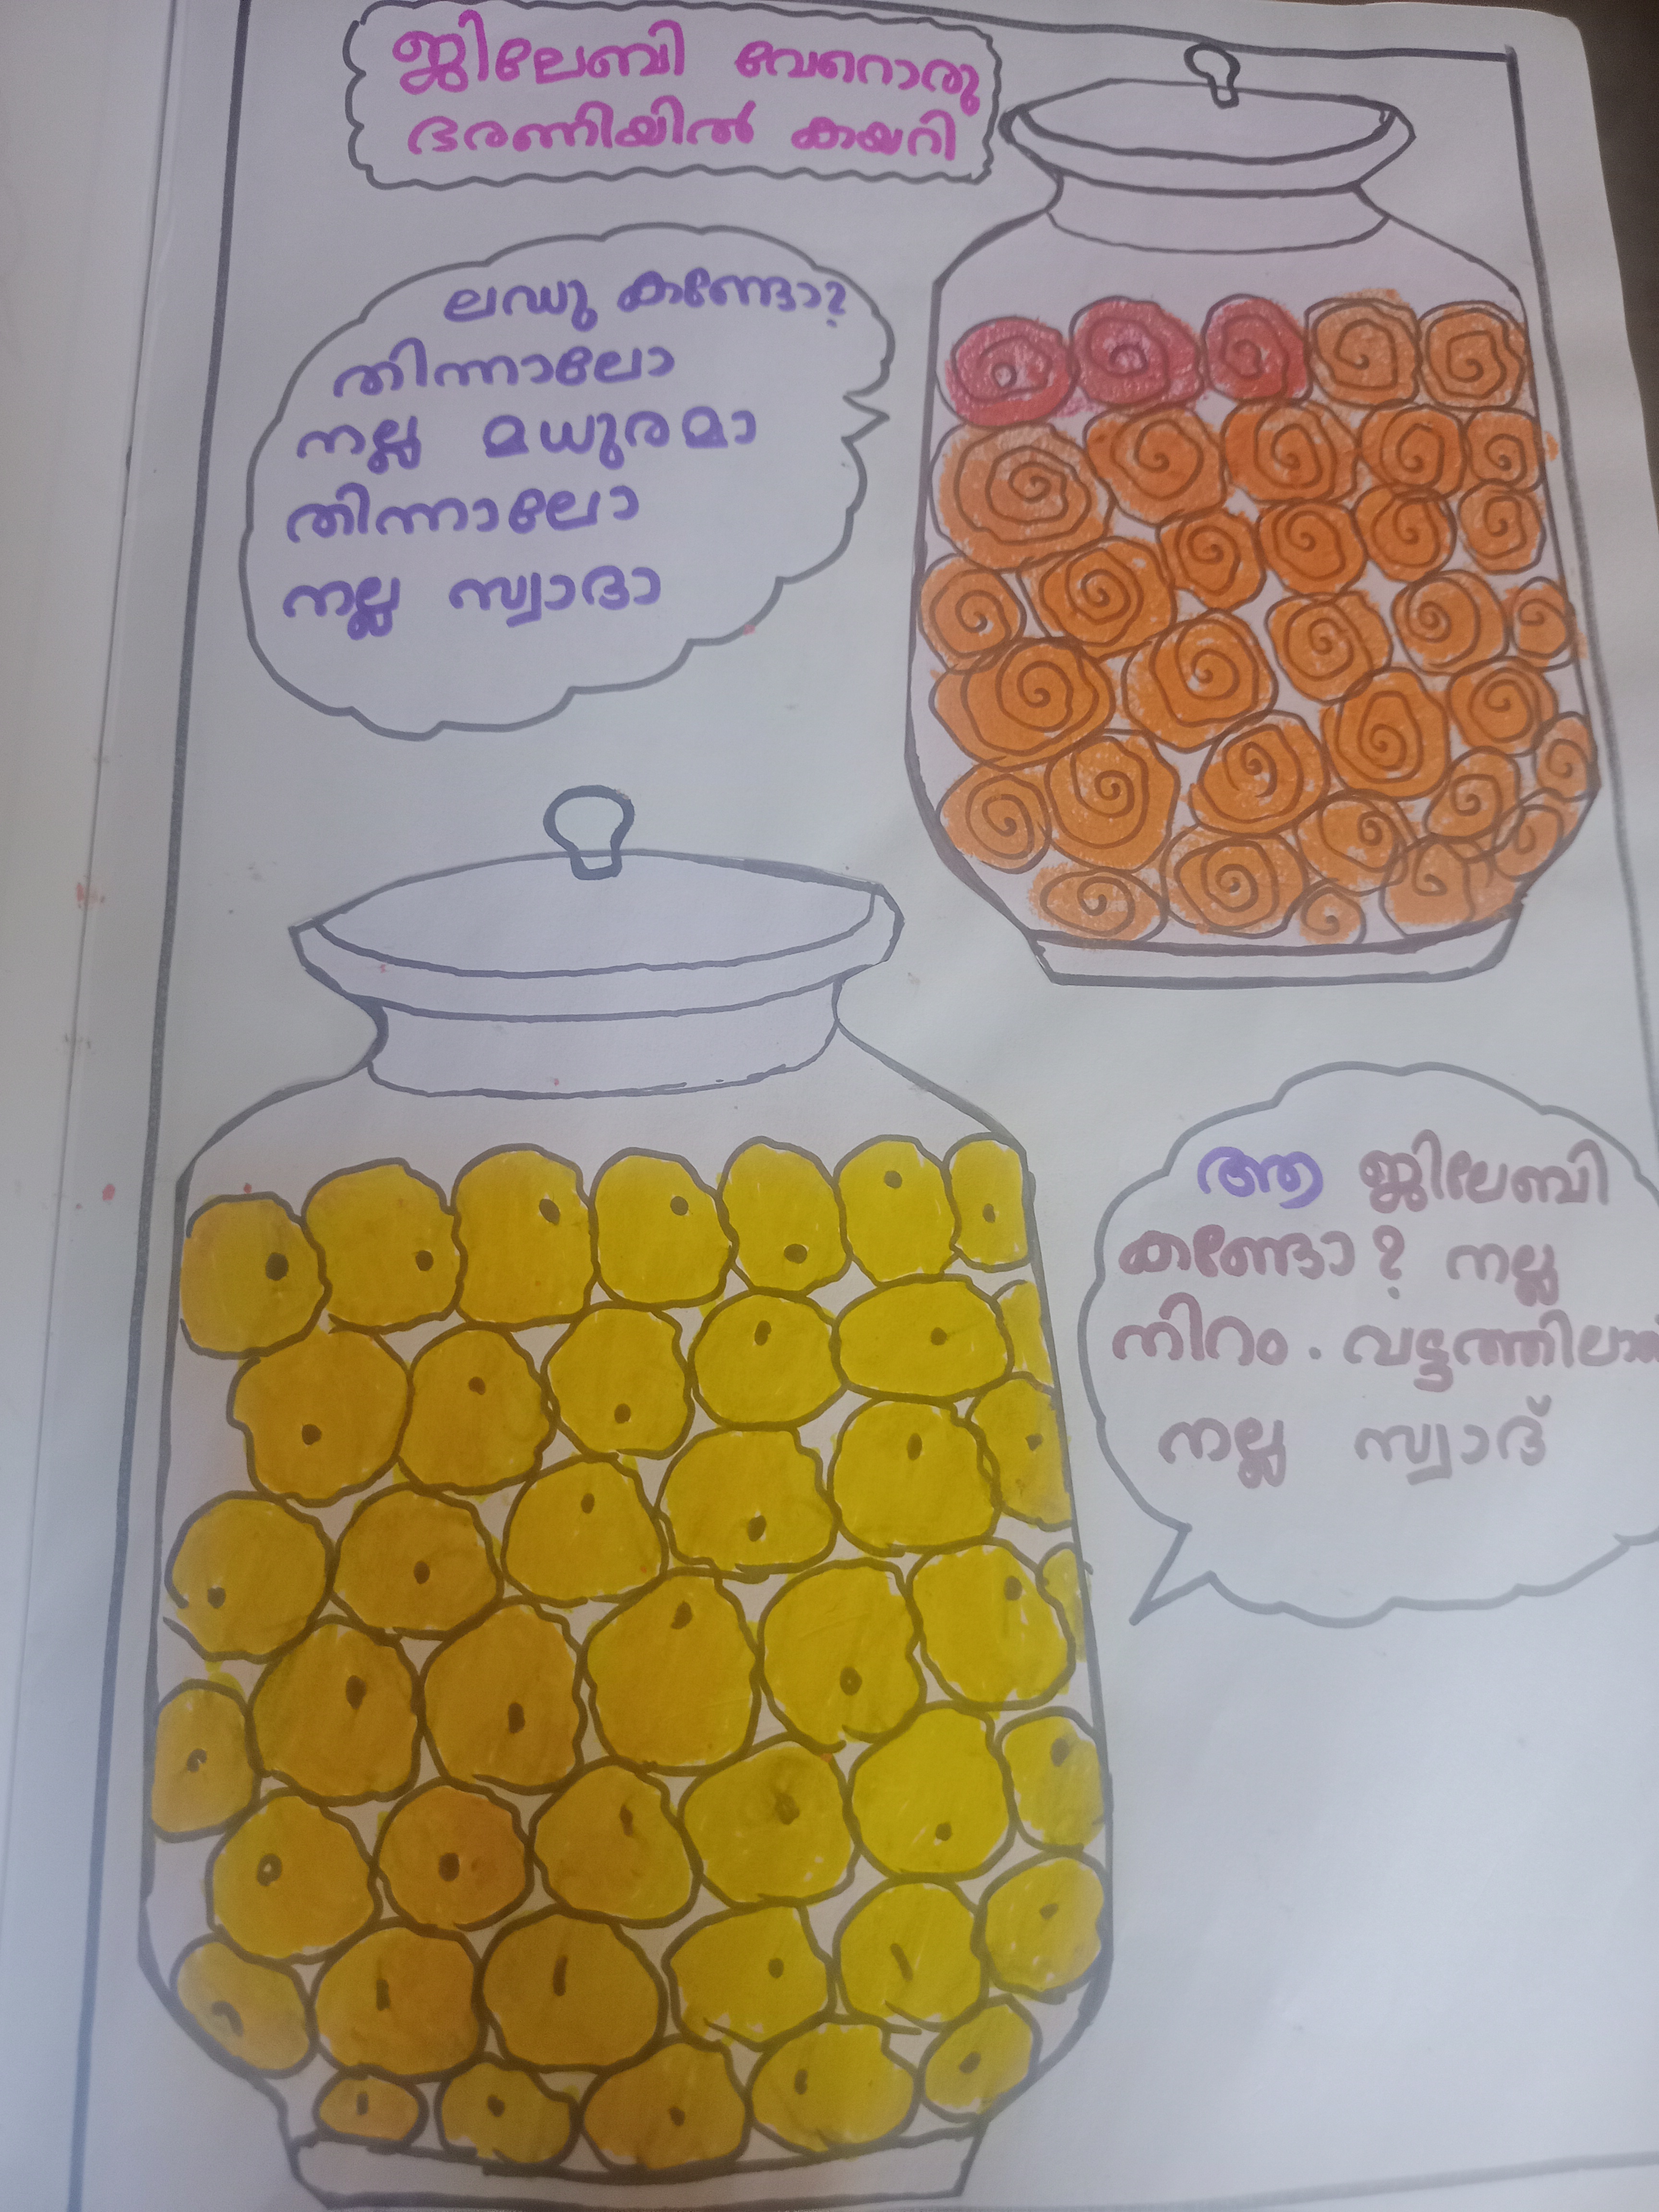 ജിലേബി വേറൊരു
ഭരണിയിൽ കയറി
ലഡു കണ്ടോ?
തിന്നാലോ
നല്ല മധുരമാ
തിന്നാലോ
നല്ല സ്വാദാ
ആ ജിലേബി
കണ്ടോ? നല്ല
നിറം. വട്ടത്തിലാ
നല്ല സ്വാദ്